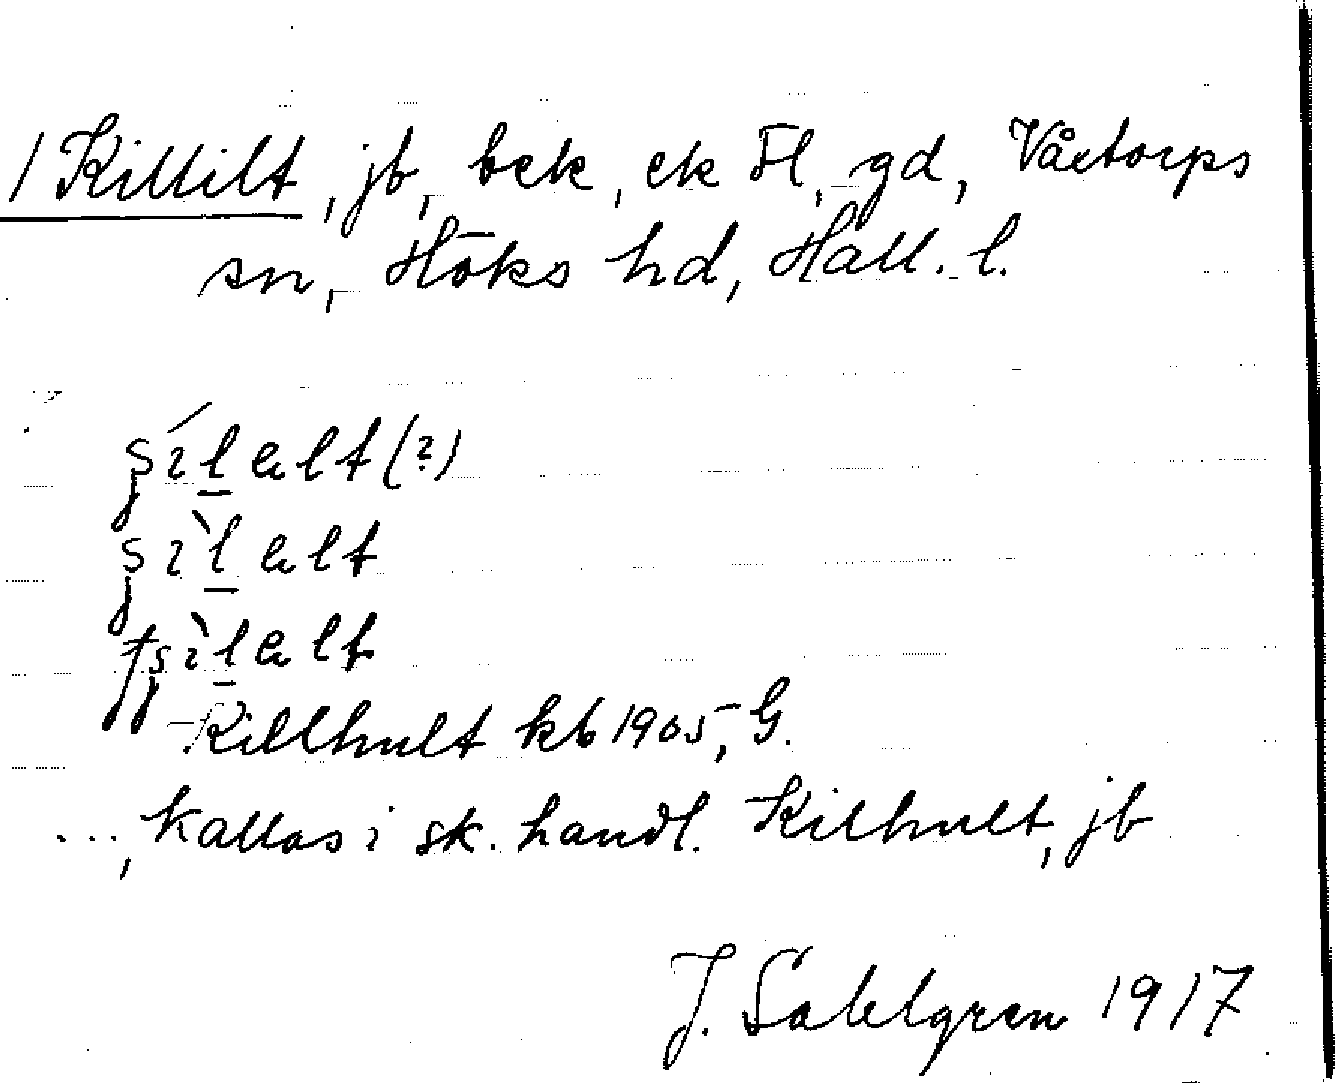 1 Killilt, jb, bek, ek öl, gd, Våxtorps
sn, Höks hd, Hall. l.
ʂíl̲alt (?)
ʂìl̲alt
tʂìl̲alt
Killhult kb 1905, G.
..., kallas i sk. handl. Killhult, jb
J. Sahlgren 1917